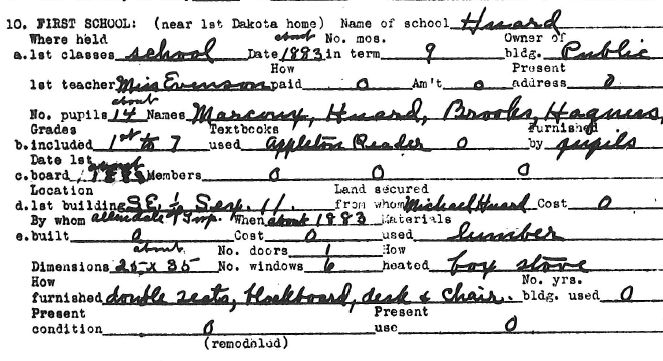 10. FIRST SCHOOL: (near 1st Dakota home) Name of school Huard
Where held about No. mos. Owner of
a.1st classes school Date 1883 in term 9 bldg. Public
How Present
1st teacher Miss Evinson paid 0 Am't 0 address 0
about
No. pupils 14 Names Marcoux, Huard, Brooks, Hagness,
Grades Textbooks Furnished
b.included 1st to 7 used Appleton Reader 0 by pupils
Date 1st about
c.board 1883 Members 0 0 0
Location Land secured
d.1st building S.E. ¼ Sec. 11. from whom Michael Huard Cost 0
By whom Twp. When about 1883 Materials
e.built 0 Cost 0 used lumber
about No. doors 1 How
Dimensions 25 x 35 No. windows 6 heated box stove
How No. yrs.
furnished double seats, blackboard, desk & chair. bldg. used 0
Present Present
condition 0 use 0
(remodeled)